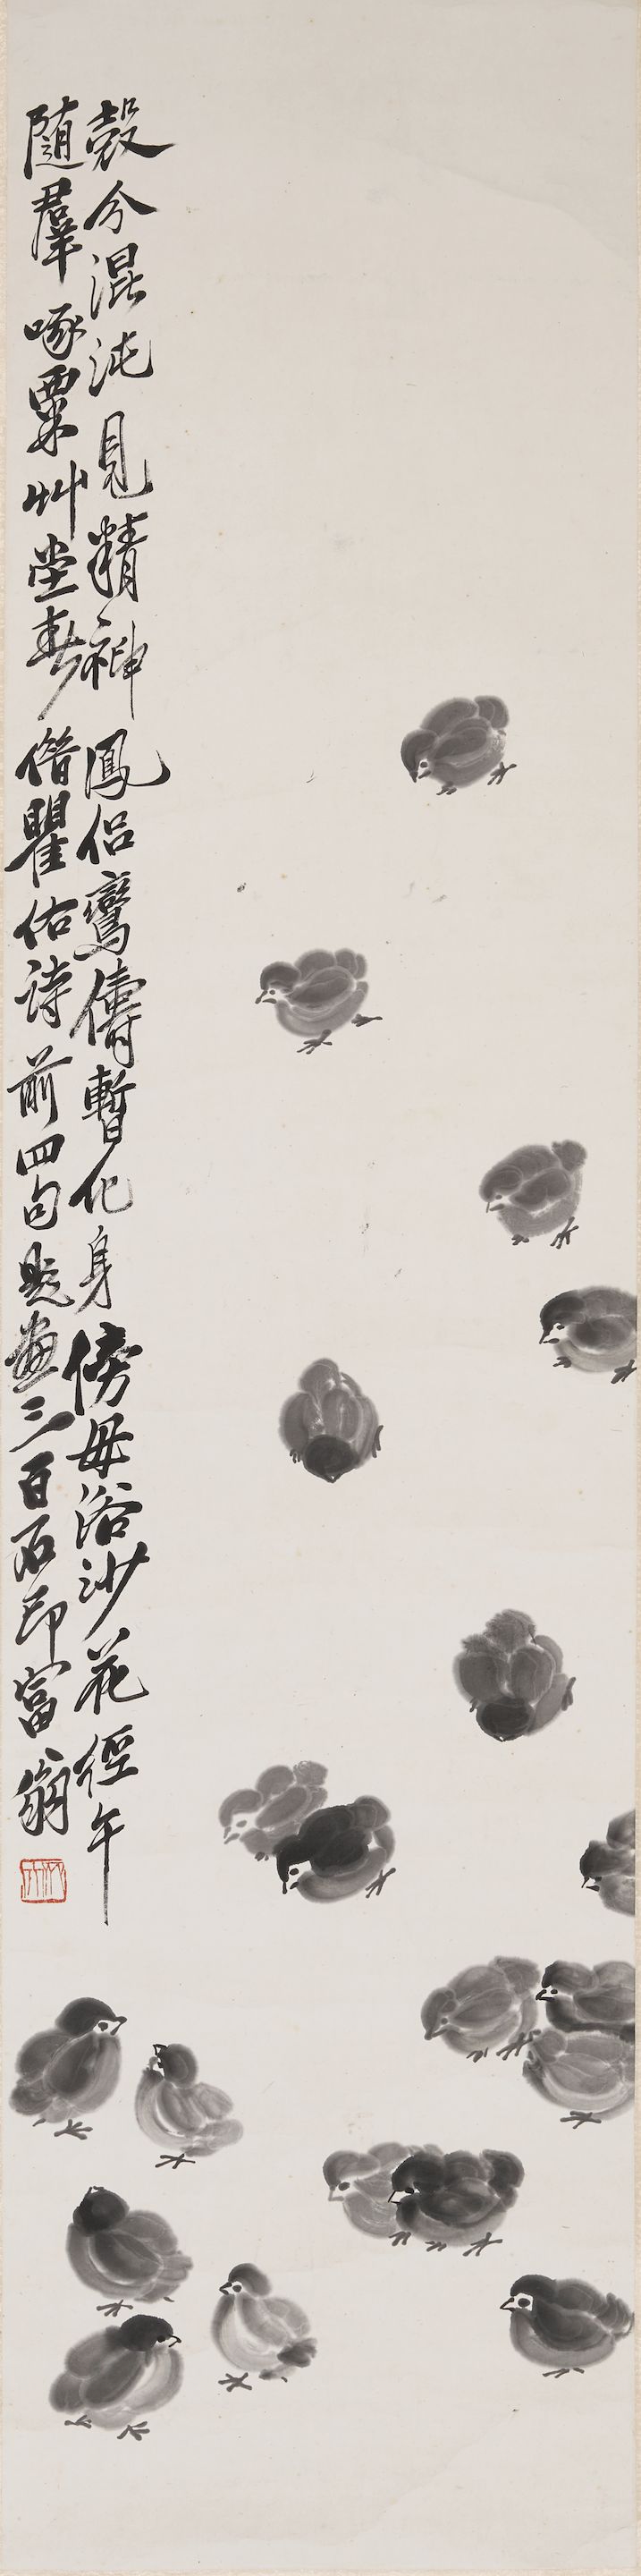 殼分混沌見精神鳳侶鸞儔暫化身傍母浴沙花徑午
隨羣啄粟艸堂春借瞿佑詩前四句題畫三百石印富翁